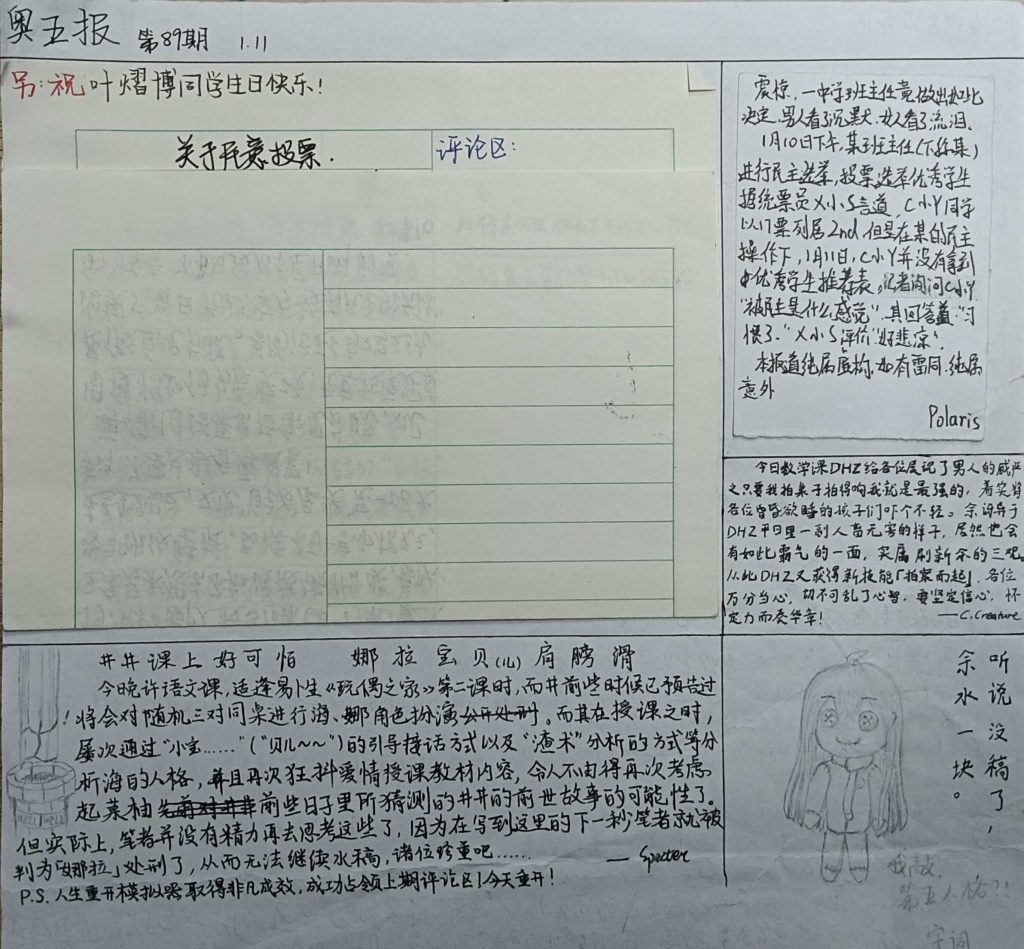 奥五报 第89期 1.11
另:祝叶熠博同学生日快乐!
关于民意投票.
评论区:
震惊,一中学班主任竟做出如此
决定,男人看了沉默,女人看了流泪.
1月10日下午,某班主任(下称某)
进行民主选举,投票选举优秀学生
据统票员X小S言道,C小Y同学
以17票列居2nd,但是在某的民主
操作下,1月11日,C小Y并没有拿到
优秀学生推荐表,记者询问C小Y
"被民主是什么感觉".其回答道:"习
惯了."X小S评价"好悲凉".
本报道纯属虚构,如有雷同,纯属
意外
Polaris
今日数学课DHZ给各位展现了男人的威严
之只要我拍桌子拍得响我就是最强的,着实将
各位昏昏欲睡的孩子们吓个不轻。余词异于
DHZ平日里一副人畜无害的样子,居然也会
有如此霸气的一面,实属刷新余的三观。
从此DHZ又获得新技能「拍案而起」,各位
万分当心,切不可乱了心智,要坚定信心,怀
定力而奏华章!
—C.Creature
井井课上好可怕 娜拉宝贝(儿)肩膀滑
今晚许语文课,适逢易卜生《玩偶之家》第二课时,而井前些时候已预告过
将会对随机三对同桌进行海、娜角色扮演公开处刑。而其在授课之时,
屡次通过"小宝……"("贝儿~~")的引导接话方式以及"渣术"分析的方式等分
析海的人格,并且再次狂抖爱情授课教材内容,令人不由得再次考虑
起某柚前些日子里所猜测的井井的前世故事的可能性了。
但实际上,笔者并没有精力再去思考这些了,因为在写到这里的下一秒笔者就被
判为「娜拉」处刑了,从而无法继续水稿,诸位珍重吧……
— Specter
P.S.人生重开模拟器取得非凡成效,成功占领上期评论区!今天重开!
WELL WELL
听说没稿了,
余水一块。
第五人格?!